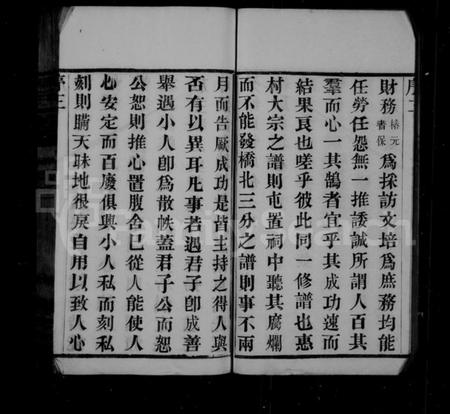 序二
財務椿元耆保為採訪文培為庶務均能
任勞任怨無一推諉誠所謂人百其
羣而心一其鵠者宜乎其成功速而
結果良也嗟乎彼此同一修譜也惠
村大宗之譜則屯置祠中聽其腐爛
而不能發橋北三分之譜則事不兩
月而告厥成功是皆主持之得人與
否有以異耳凡事若遇君子卽成善
舉遇小人卽為散帙蓋君子公而恕
公恕則推心置腹舍已從人能使人
心安定而百廢俱興小人私而刻私
刻則瞞天昧地很戾自用以致人心
序三